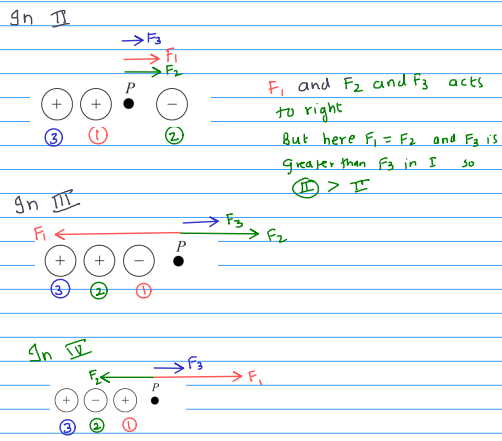 In II
F3
F1
F2
P
+ + −
③ ① ②
F1 and F2 and F3 acts
to right
But here F1 = F2 and F3 is
greater than F3 in I so
II > I
In III
F1 F3
F2
P
+ + −
③ ② ①
In IV
F2 F3
F1
P
+ − +
③ ② ①